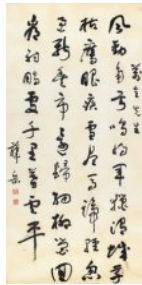 先生
風勁角弓鳴將軍獵渭城草
枯鷹眼疾雪盡馬蹄輕忽
過新豐市還歸細柳營回
看射鵰處千里暮雲平
薛岳